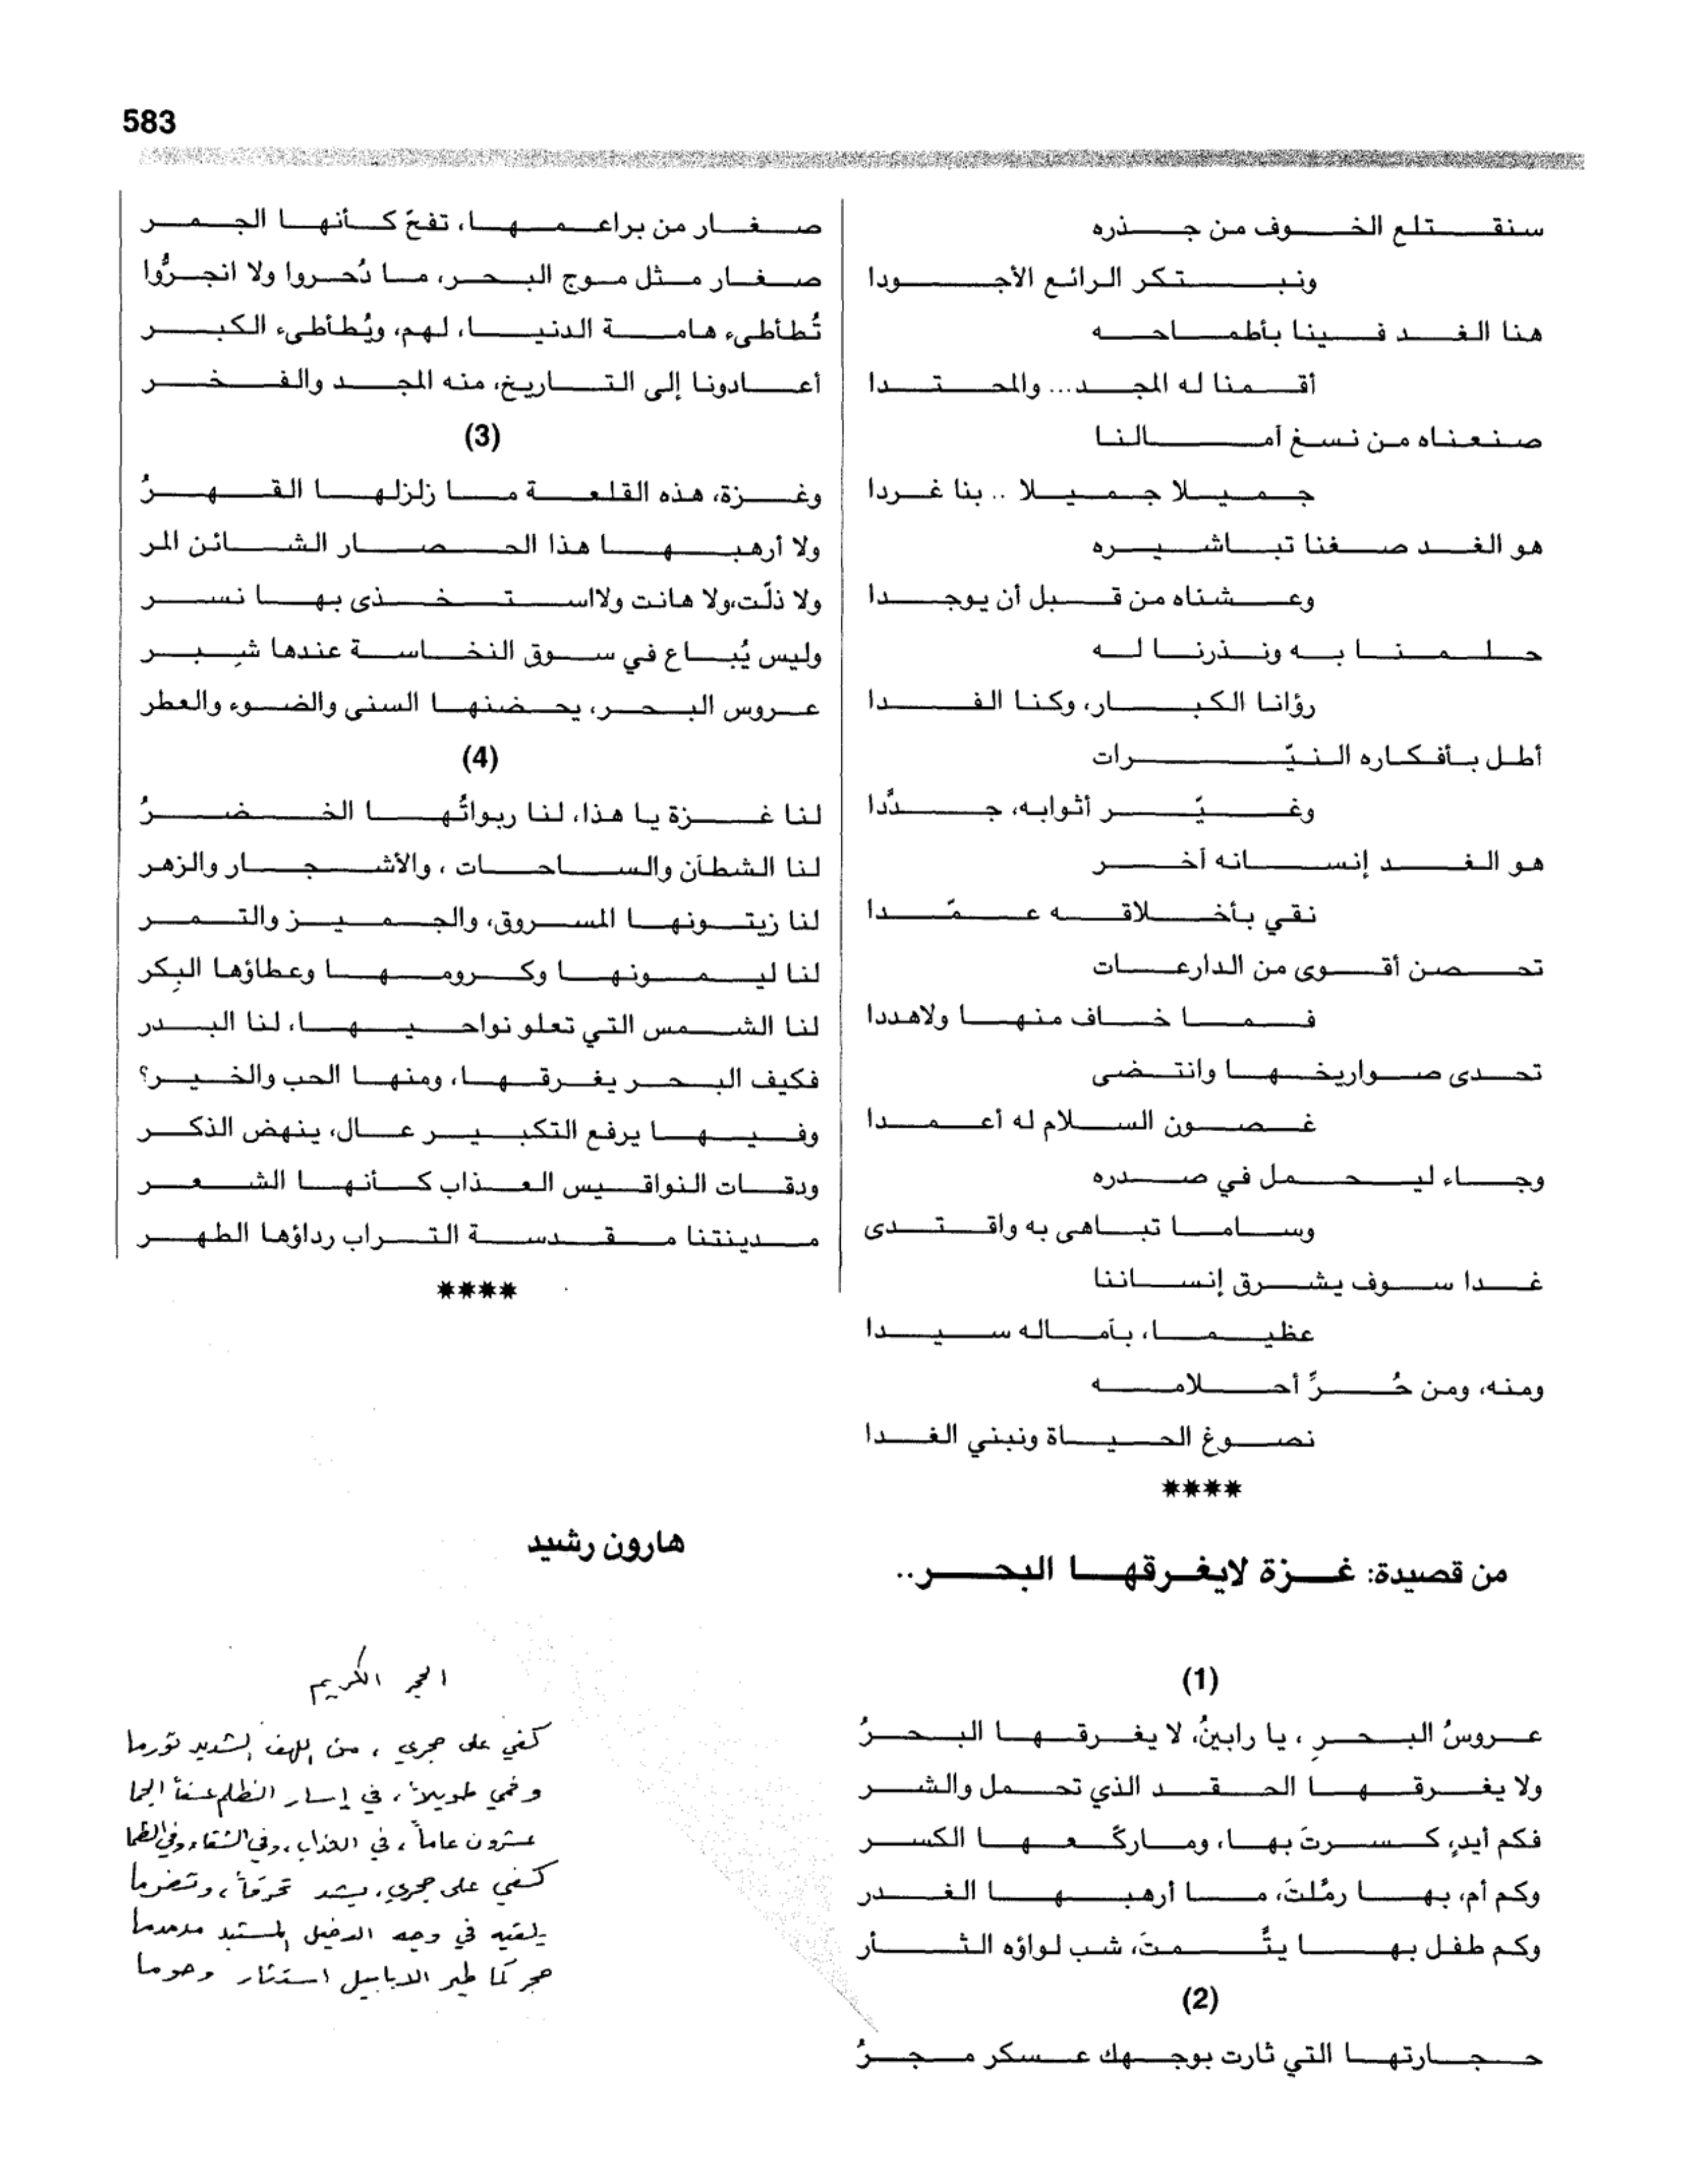 583
سنقتلع الخوف من جذره
ونبتكر الرائع الأجودا
هنا الغد فينا بأطماحه
أقمنا له المجد... والمحتدا
صنعناه من نسغ آمالنا
جميلا جميلا .. بنا غردا
هو الغد صغنا تباشيره
وعشناه من قبل أن يوجدا
حلمنا به ونذرنا له
رؤانا الكبار، وكنا الفدا
أطل بأفكاره النيّرات
وغيّر أثوابه، جدُّدا
هو الغد إنسانه آخر
نقي بأخلاقه عمّدا
تحصن أقوى من الدارعات
فما خاف منها ولاهددا
تحدى صواريخها وانتضى
غصون السلام له أعمدا
وجاء ليحمل في صدره
وساما تباهى به واقتدى
غدا سوف يشرق إنساننا
عظيما، بآماله سيدا
ومنه، ومن حُرِّ أحلامه
نصوغ الحياة ونبني الغدا
****
من قصيدة: غزة لايغرقها البحر..
(1)
عروسُ البحرِ ، يا رابينُ، لا يغرقها البحرُ
ولا يغرقها الحقد الذي تحمل والشر
فكم أيدٍ، كسرتَ بها، وماركّعها الكسر
وكم أم، بها رمَّلتَ، ما أرهبها الغدر
وكم طفل بها يتَّمتَ، شب لواؤه الثأر
(2)
حجارتها التي ثارت بوجهك عسكر مجرُ
صغار من براعمها، تفحّ كأنها الجمر
صغار مثل موج البحر، ما دُحروا ولا انجرُّوا
تُطأطىء هامة الدنيا، لهم، ويُطأطىء الكبر
أعادونا إلى التاريخ، منه المجد والفخر
(3)
وغزة، هذه القلعة ما زلزلها القهرُ
ولا أرهبها هذا الحصار الشائن المر
ولا ذلّت،ولا هانت ولااستخذى بها نسر
وليس يُباع في سوق النخاسة عندها شِبر
عروس البحر، يحضنها السنى والضوء والعطر
(4)
لنا غزة يا هذا، لنا ربواتُها الخضرُ
لنا الشطآن والساحات ، والأشجار والزهر
لنا زيتونها المسروق، والجميز والتمر
لنا ليمونها وكرومها وعطاؤها البِكر
لنا الشمس التي تعلو نواحيها، لنا البدر
فكيف البحر يغرقها، ومنها الحب والخير؟
وفيها يرفع التكبير عال، ينهض الذكر
ودقات النواقيس العذاب كأنها الشعر
مدينتنا مقدسة التراب رداؤها الطهر
****
هارون رشيد
الحجر الكريم
كفي على حجري ، من اللهف الشديد تورما
وفمي طويلاً ، في إسار الظلم عنفاً ألجما
عشرون عاماً ، في العذاب ، وفي الشقاء وفي الظما
كفي على حجري، يشد تحرقاً ، وتضرما
يلقيه في وجه الدخيل المستبد مدمدما
حجر كما طير الأبابيل استثار وحوما